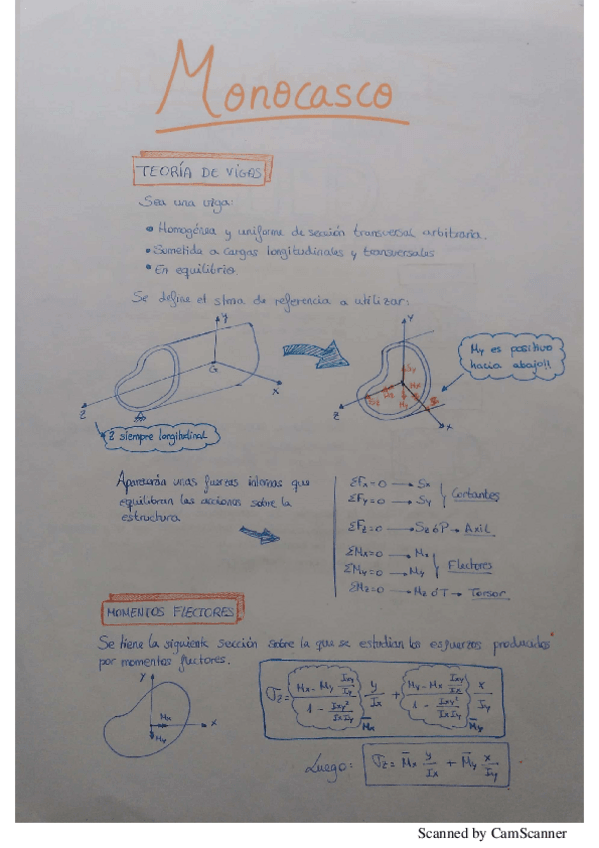 Monocasco
TEORÍA DE VIGAS
Sea una viga:
• Homogénea y uniforme de sección transversal arbitraria.
• Sometida a cargas longitudinales y transversales
• En equilibrio
Se define el stma de referencia a utilizar:
y
G
x
z
z siempre longitudinal
y
My es positivo
hacia abajo!!
z
x
Aparecerán unas fuerzas internas que
equilibran las acciones sobre la
estructura
ΣFx=0 → Sx
ΣFy=0 → Sy
Cortantes
ΣFz=0 → Sz ó P → Axil
ΣMx=0 → Mx
ΣMy=0 → My
Flectores
ΣMz=0 → Mz ó T → Torsor
MOMENTOS FLECTORES
Se tiene la siguiente sección sobre la que se estudian los esfuerzos producidos
por momentos flectores.
y
x
Mx
My
σz = (Mx - My Ixy/Iy)/(1 - Ixy²/IxIy) y/Ix + (My - Mx Ixy/Ix)/(1 - Ixy²/IxIy) x/Iy
M̄x M̄y
Luego: σz = M̄x y/Ix + M̄y x/Iy
Scanned by CamScanner